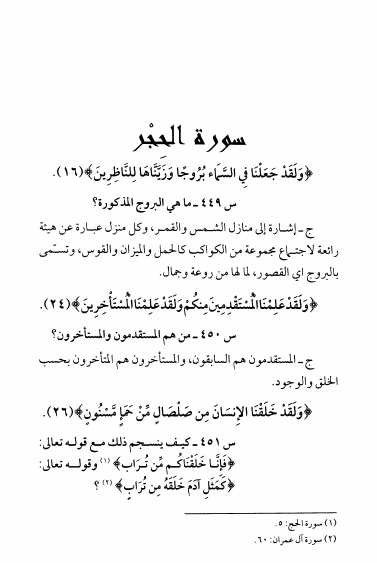 سورة الحجْر
﴿وَلَقَدْ جَعَلْنَا فِي السَّمَاءِ بُرُوجًا وَزَيَّنَّاهَا لِلنَّاظِرِينَ﴾(١٦).
س ٤٤٩ ـ ما هي البروج المذكورة؟
ج ـ إشارة إلى منازل الشمس والقمر، وكل منزل عبارة عن هيئة
رائعة لاجتماع مجموعة من الكواكب كالحمل والميزان والقوس، وتسمّى
بالبروج اي القصور، لما لها من روعة وجمال.
﴿وَلَقَدْ عَلِمْنَا الْمُسْتَقْدِمِينَ مِنكُمْ وَلَقَدْ عَلِمْنَا الْمُسْتَأْخِرِينَ﴾(٢٤).
س ٤٥٠ ـ من هم المستقدمون والمستأخرون؟
ج ـ المستقدمون هم السابقون، والمستأخرون هم المتأخرون بحسب
الخلق والوجود.
﴿وَلَقَدْ خَلَقْنَا الْإِنسَانَ مِن صَلْصَالٍ مِّنْ حَمَإٍ مَّسْنُونٍ﴾(٢٦).
س ٤٥١ ـ كيف ينسجم ذلك مع قوله تعالى:
﴿فَإِنَّا خَلَقْنَاكُم مِّن تُرَابٍ﴾ (١) وقوله تعالى:
﴿كَمَثَلِ آدَمَ خَلَقَهُ مِن تُرَابٍ﴾ (٢) ؟
(١) سورة الحج: ٥.
(٢) سورة آل عمران: ٦٠.